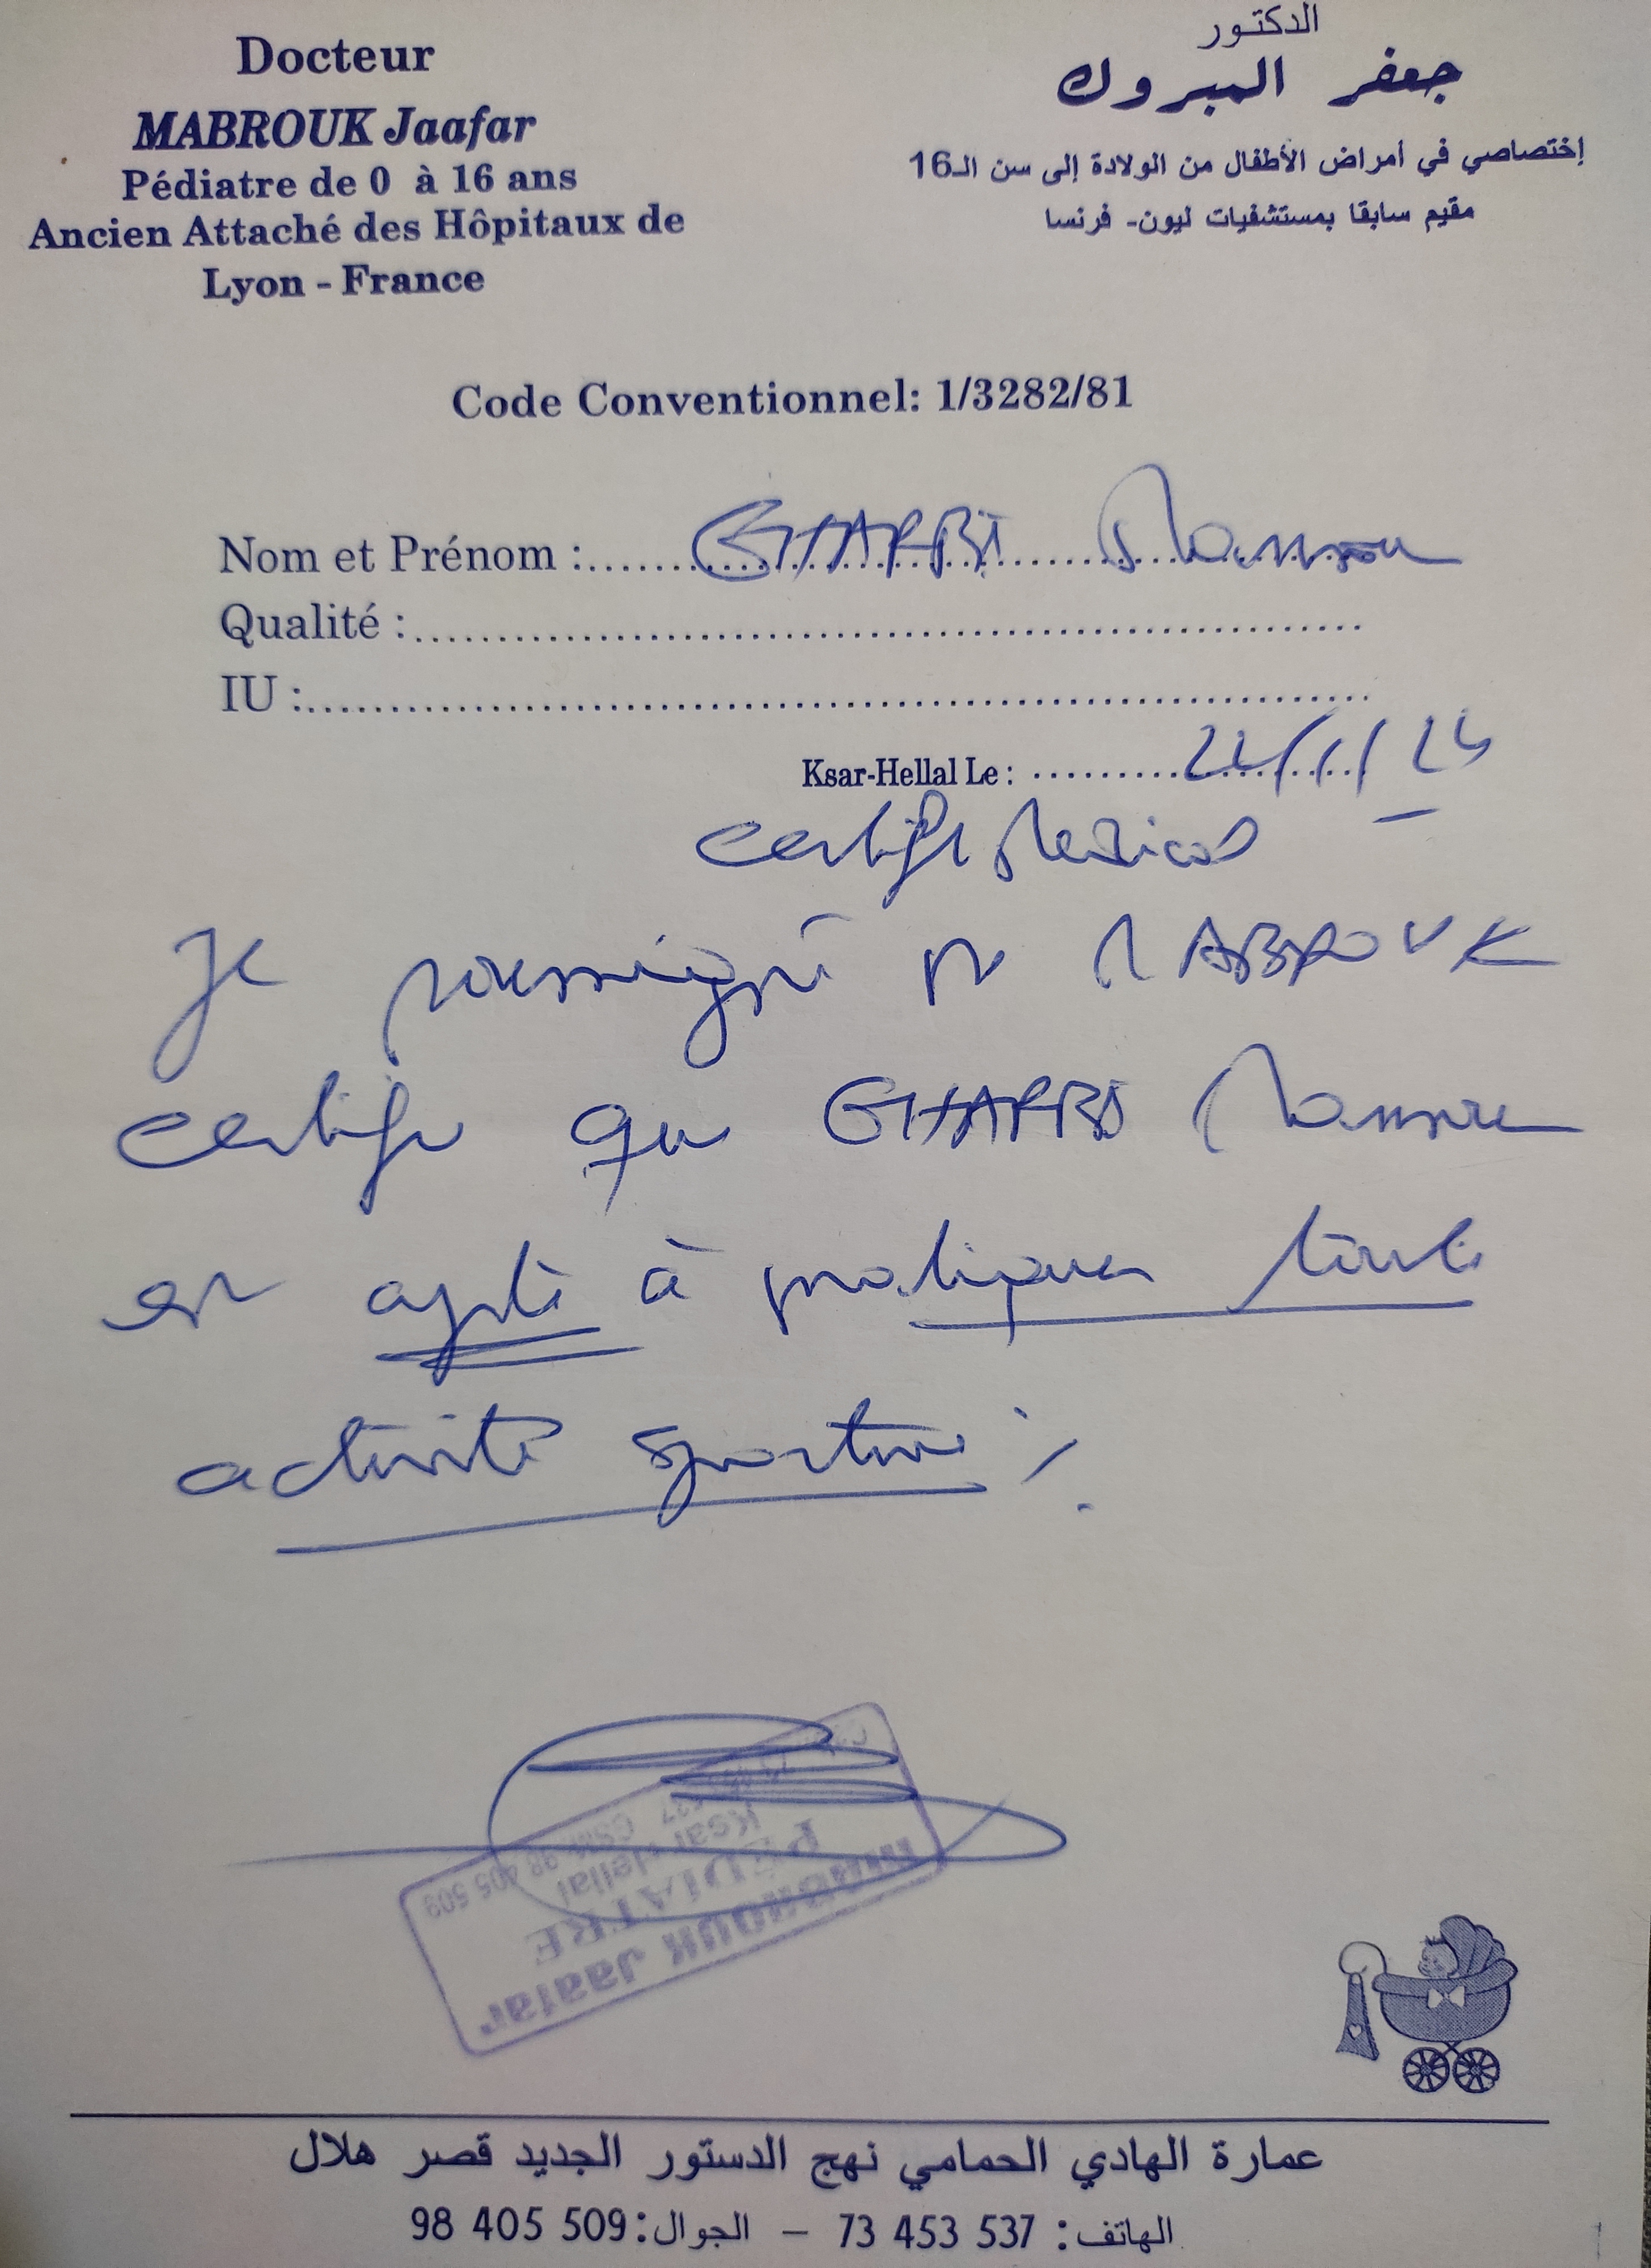 Docteur
MABROUK Jaafar
Pédiatre de 0 à 16 ans
Ancien Attaché des Hôpitaux de
Lyon - France
الدكتور
جعفر المبروك
إختصاصي في أمراض الأطفال من الولادة إلى سن الـ16
مقيم سابقا بمستشفيات ليون- فرنسا
Code Conventionnel: 1/3282/81
Nom et Prénom : GHARBI Mansour
Qualité :
IU :
Ksar-Hellal Le :
certifi Medical
Je soussigné Dr MABROUK
certifie que GHARBI Mansour
est apte à pratiquer toute
activité sportive
MABROUK Jaafar
PÉDIATRE
Ksar Hellal
GSM: 98 405 509
عمارة الهادي الحمامي نهج الدستور الجديد قصر هلال
الهاتف: 73 453 537 – الجوال: 98 405 509